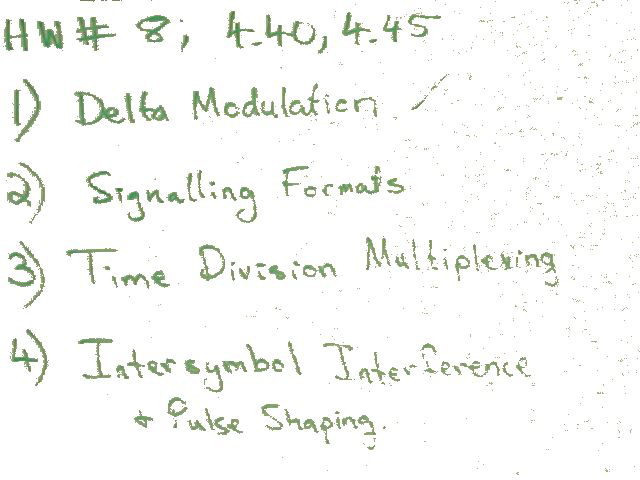 HW# 8; 4.40, 4.45
1) Delta Modulation
2) Signalling Formats
3) Time Division Multiplexing
4) Intersymbol Interference
+ Pulse Shaping.